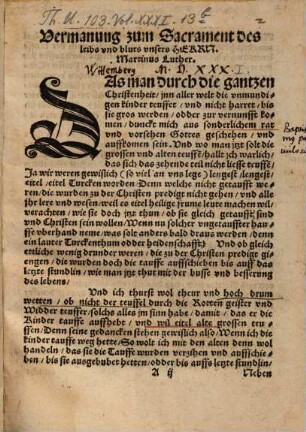 Th. U. 103. Vol. XXXI. 13.
Vermanung zum Sacrament des
leibs und bluts unsers HERRN.
Martinus Luther.
Wittemberg M. D. XXX. I.
DAs man durch die gantzen
Christenheit / jnn aller welt die unmundi-
gen kinder teuffet / und nicht harret / bis
sie gros werden / odder zur vernunfft ko-
men / dunckt mich aus sonderlichem rat
und vorsehen Gottes geschehen / und
auffkomen sein. Und wo man jtzt solt die
grossen und alten teuffē / halt jch warlich /
das sich das zehende teil nicht liesse teuffē
Ja wir weren gewislich (so viel an uns lege) lengest / lengest /
eitel / eitel Turcken worden. Denn welche nicht getaufft we-
ren / die wurden zu der Christen predigt nicht gehen / und alle
lere und wesen / weil es eitel heilige frume leute machen wil /
verachten / wie sie doch jtzt thun / ob sie gleich getaufft sind
und Christen sein wollen. Wenn nu solcher ungetauffter hauf-
fe uberhand neme was solt anders bald draus werden / denn
ein lauter Turckenthum odder heidenschafft? Und ob gleich
ettliche wenig drunder weren / die zu der Christen predigt gien-
gen / die wurden doch die tauffe auffschieben bis auff das
letzte stundlin / wie man jtzt thut mit der busse und besserung
des lebens /
Und ich thurst wol theur und hoch drumb
wetten / ob nicht der teuffel durch die Rotten geister und
Widder teuffer / solchs alles jm sinn habe / damit / das er die
Kinder tauffe auffhebt / und wil eitel alte grossen teu-
ffen / Denn seine gedancken stehen gewislich also / Wenn ich die
kinder tauffe weg hette / So wolt ich mit den alten denn wol
handeln / das sie die Tauffe wurden verzihen und auffschie-
ben / bis sie ausgebubet hetten / odder bis auffs letzte stundlin /
A ij Neben